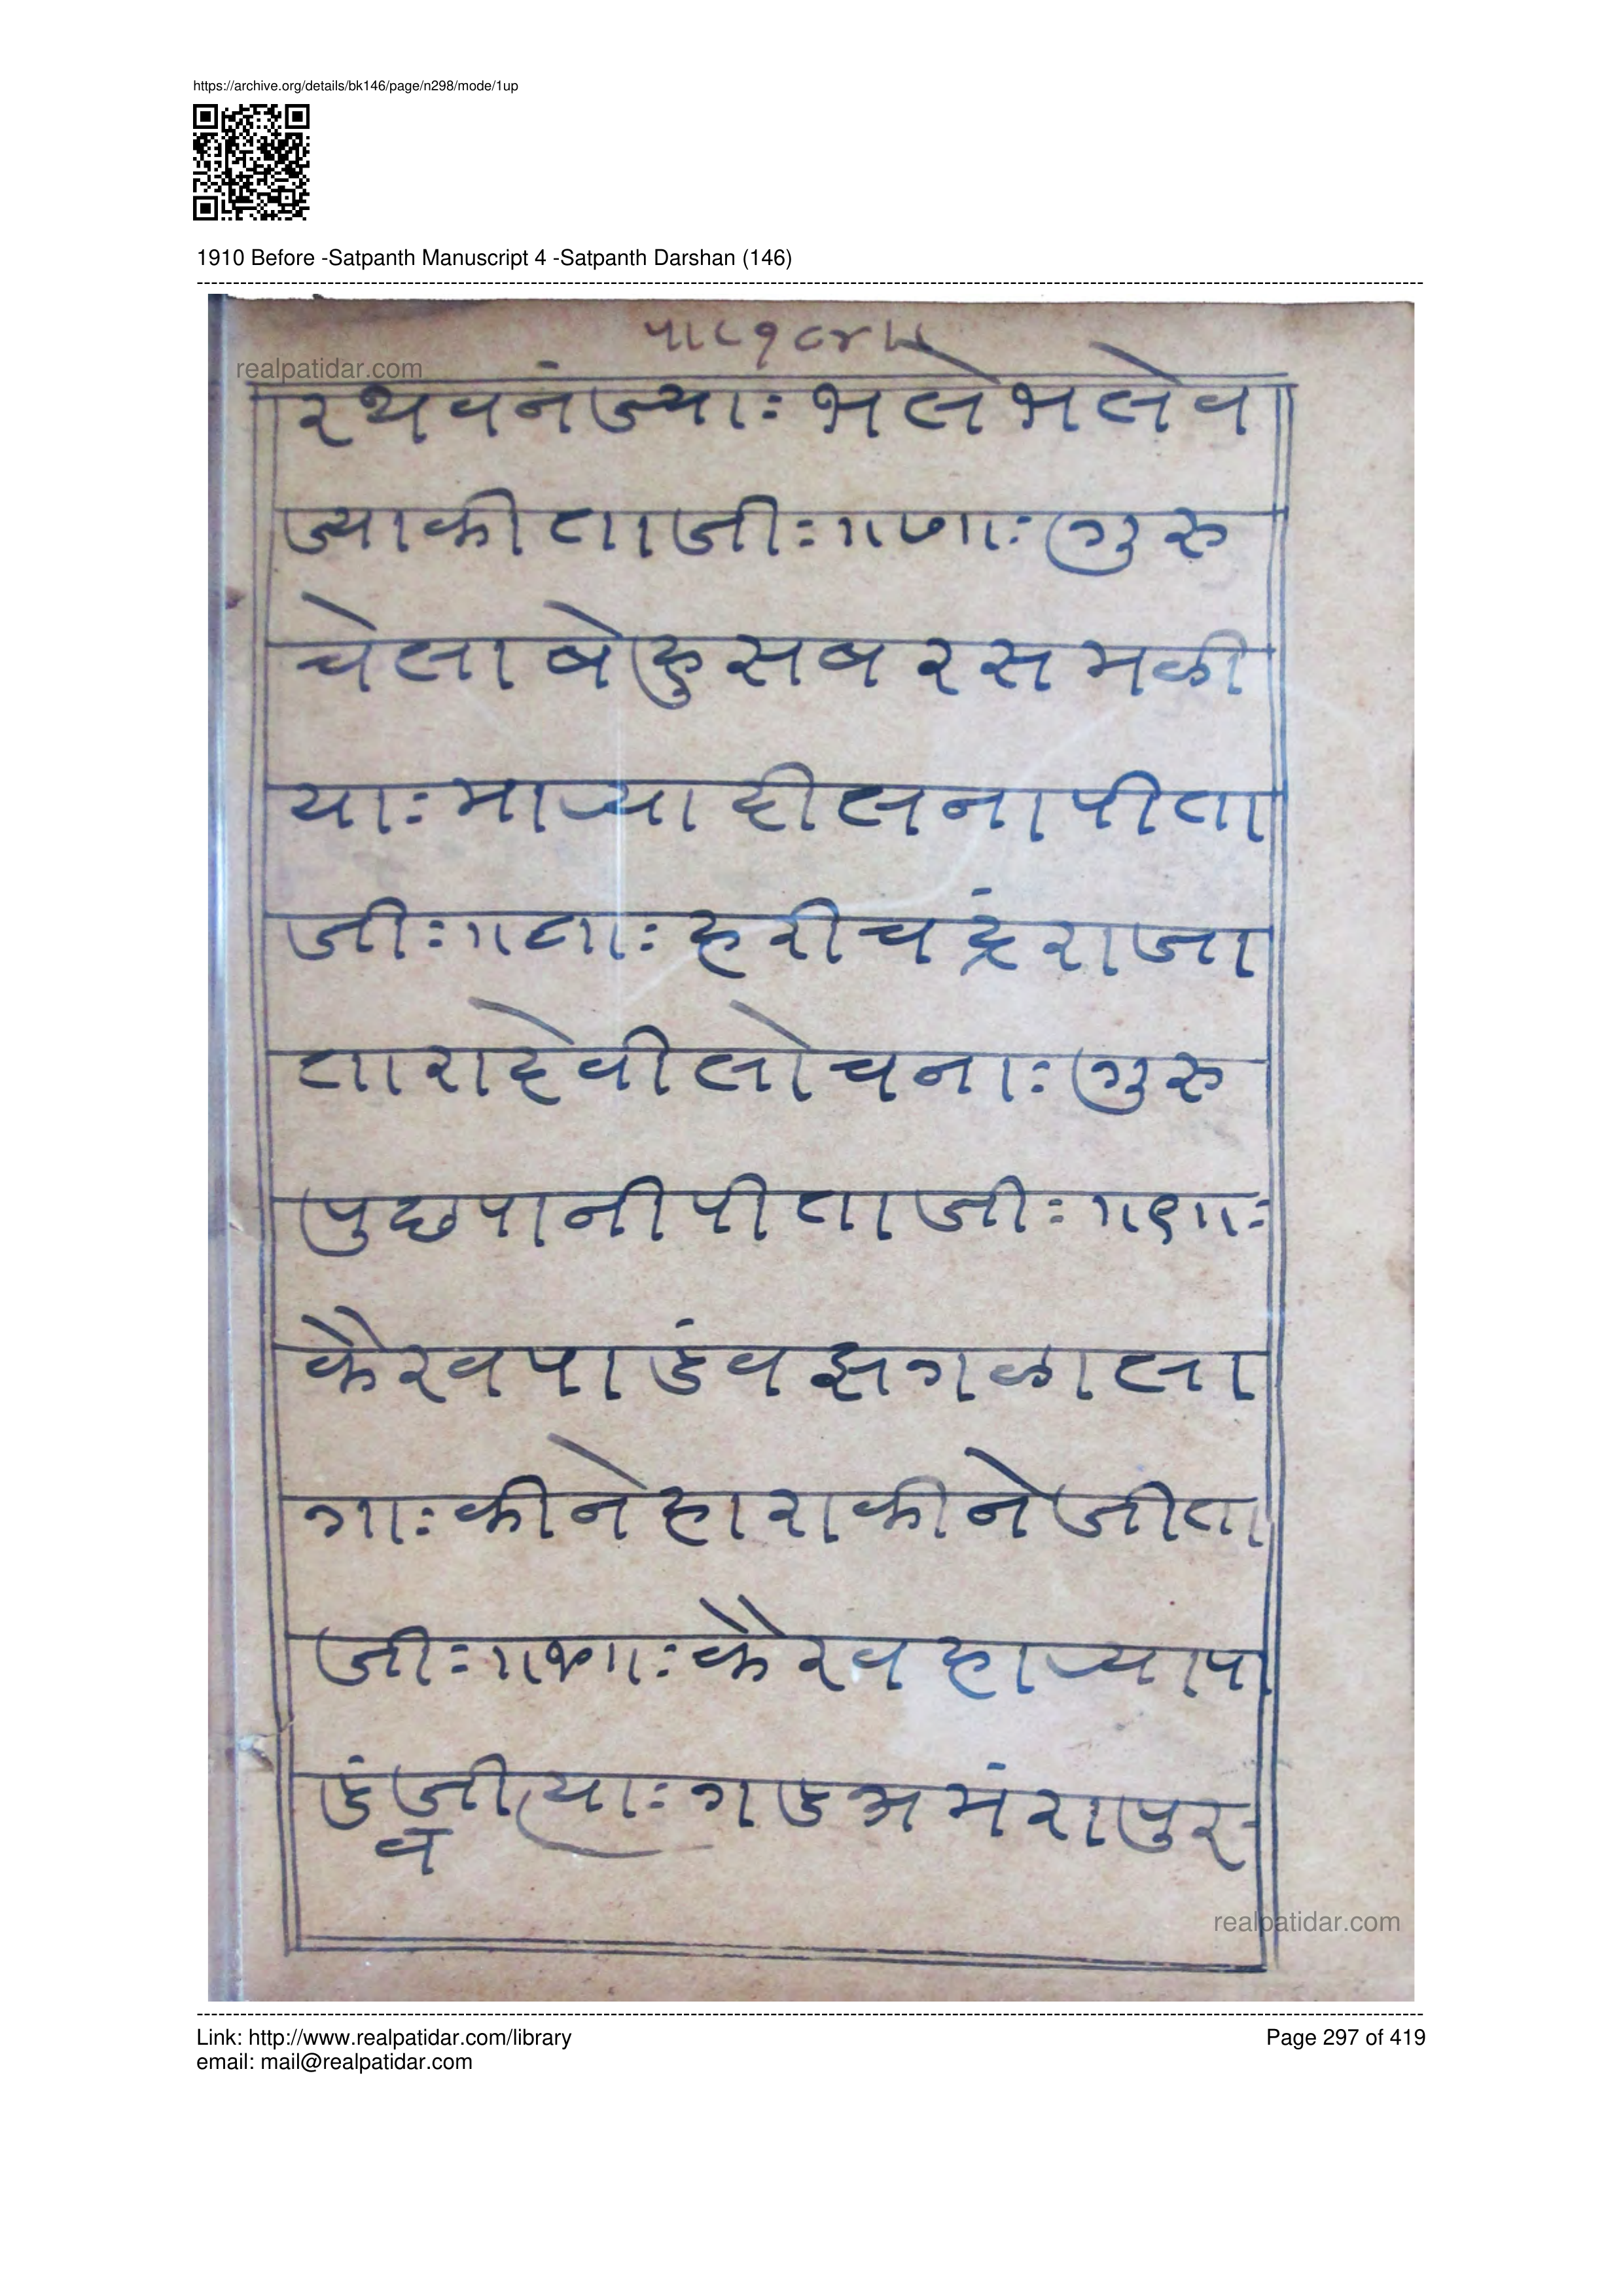 https://archive.org/details/bk146/page/n298/mode/1up
1910 Before -Satpanth Manuscript 4 -Satpanth Darshan (146)
realpatidar.com
रथवनंज्याः भलेभलेव
ज्याकीताजीः ॥७॥ः गुरु
चेलाबेहुसबरसमळी
याः मार्‍यादीलनापीता
जीः ॥८॥ः हरीचद्रंराजा
तारादेवीलोचनाः गुरु
पुछपानीपीताजीः ॥९॥ः
कैरवपाडंवझगळाला
गाः कीनेहाराकीनेजीता
जीः ॥१०॥ः कैरवहार्‍यापा
डंवजीत्याः गडअमंरापुर
realpatidar.com
Link: http://www.realpatidar.com/library
Page 297 of 419
email: mail@realpatidar.com